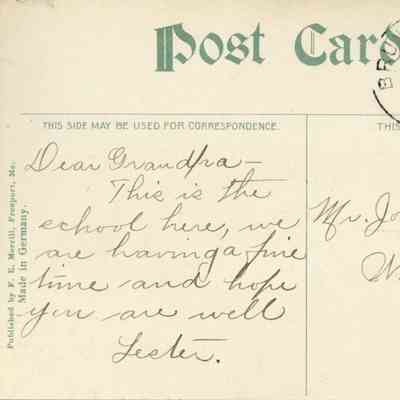 Post Card
BRU
THIS SIDE MAY BE USED FOR CORRESPONDENCE.
THIS
Dear Grandpa—
This is the
school here, we
are having a fine
time and hope
you are well
Lester.
Mr. Jo
Published by F. E. Merrill, Freeport, Me.
Made in Germany.